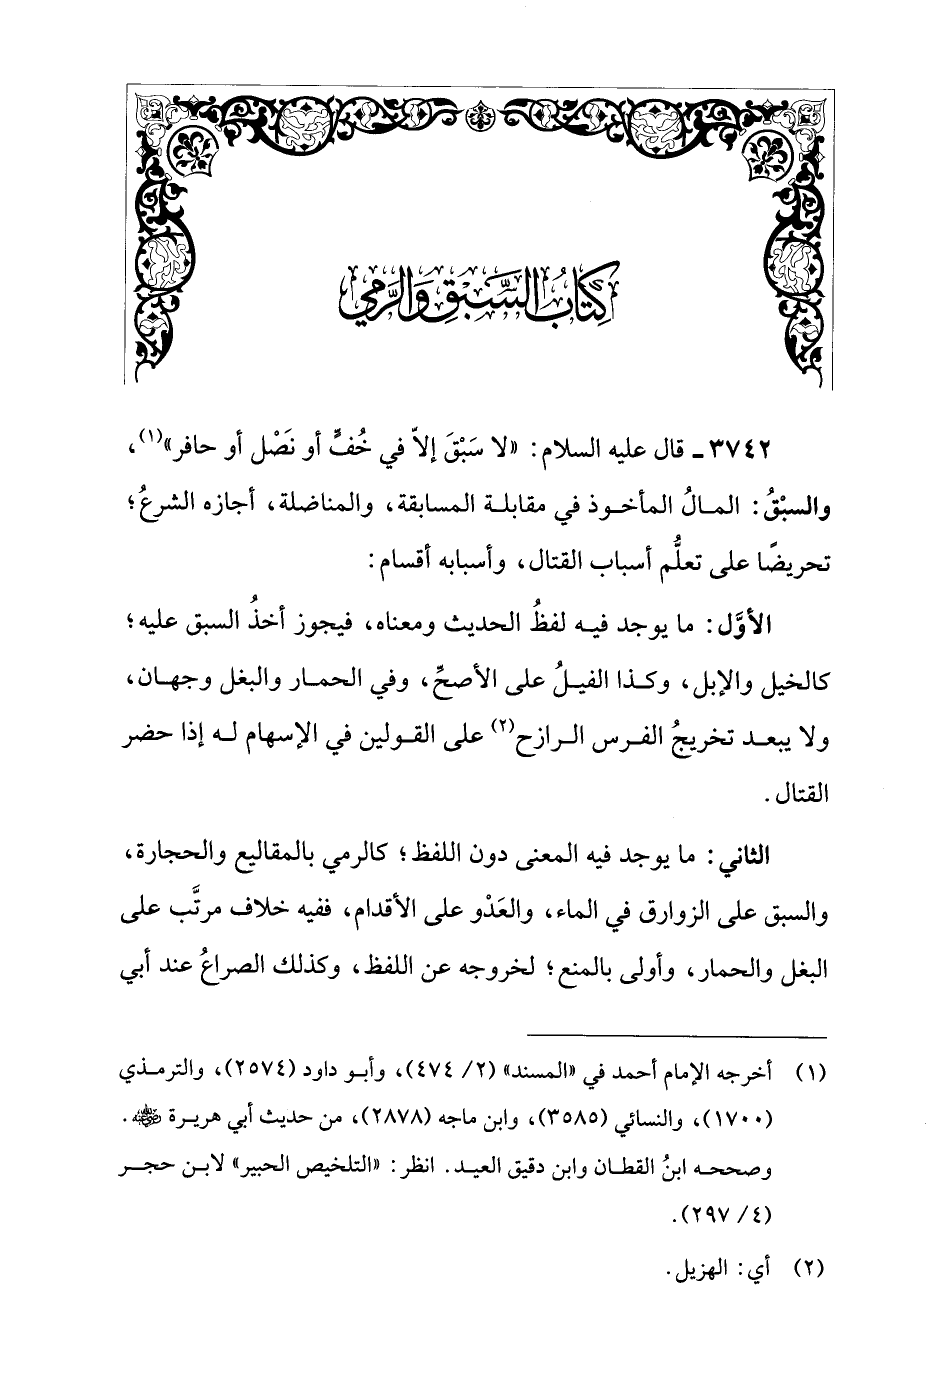 كتابُ السَّبْقِ وَالرَّمي
٣٧٤٢ ـ قال عليه السلام: «لا سَبْقَ إلاّ في خُفٍّ أو نَصْل أو حافر»(١)،
والسبْقُ: المـالُ المأخـوذ في مقابلـة المسابقة، والمناضلة، أجازه الشرعُ؛
تحريضًا على تعلُّم أسباب القتال، وأسبابه أقسام:
الأوَّل: ما يوجد فيـه لفظُ الحديث ومعناه، فيجوز أخذُ السبق عليه؛
كالخيل والإبل، وكـذا الفيلُ على الأصحِّ، وفي الحمـار والبغل وجهـان،
ولا يبعـد تخريجُ الفـرس الـرازح(٢) على القولين في الإسهام لـه إذا حضر
القتال.
الثاني: ما يوجد فيه المعنى دون اللفظ؛ كالرمي بالمقاليع والحجارة،
والسبق على الزوارق في الماء، والعَدْو على الأقدام، ففيه خلاف مرتَّب على
البغل والحمار، وأولى بالمنع؛ لخروجه عن اللفظ، وكذلك الصراعُ عند أبي
(١) أخرجه الإمام أحمد في «المسند» (٢/ ٤٧٤)، وأبـو داود (٢٥٧٤)، والترمـذي
(١٧٠٠)، والنسائي (٣٥٨٥)، وابن ماجه (٢٨٧٨)، من حديث أبي هريـرة ﵁.
وصححـه ابنُ القطـان وابن دقيق العيـد. انظر: «التلخيص الحبير» لابن حجـر
(٤/ ٢٩٧).
(٢) أي: الهزيل.